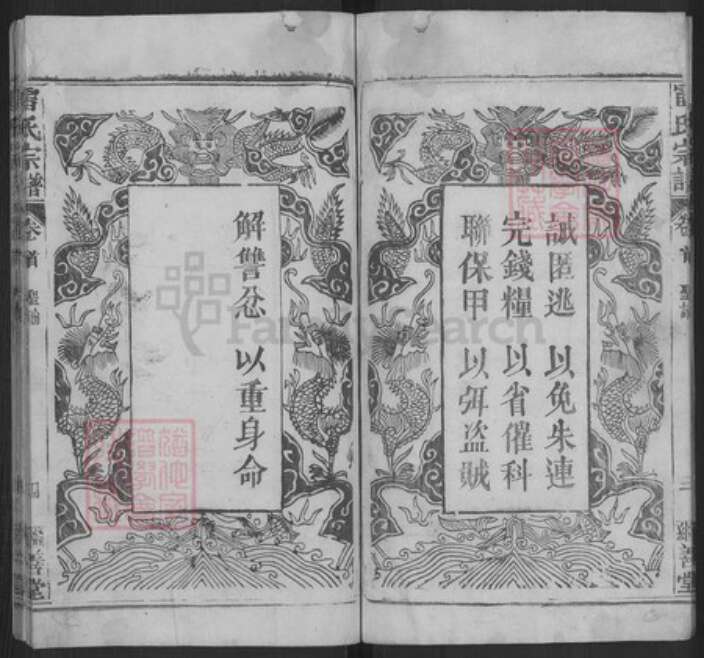 誡匿逃 以免朱連
完錢糧 以省催科
聯保甲 以弭盜賊
解讐忿 以重身命
雷氏宗譜
卷首 聖諭
善堂
雷氏宗譜
卷首 聖諭
善堂
FamilySearch